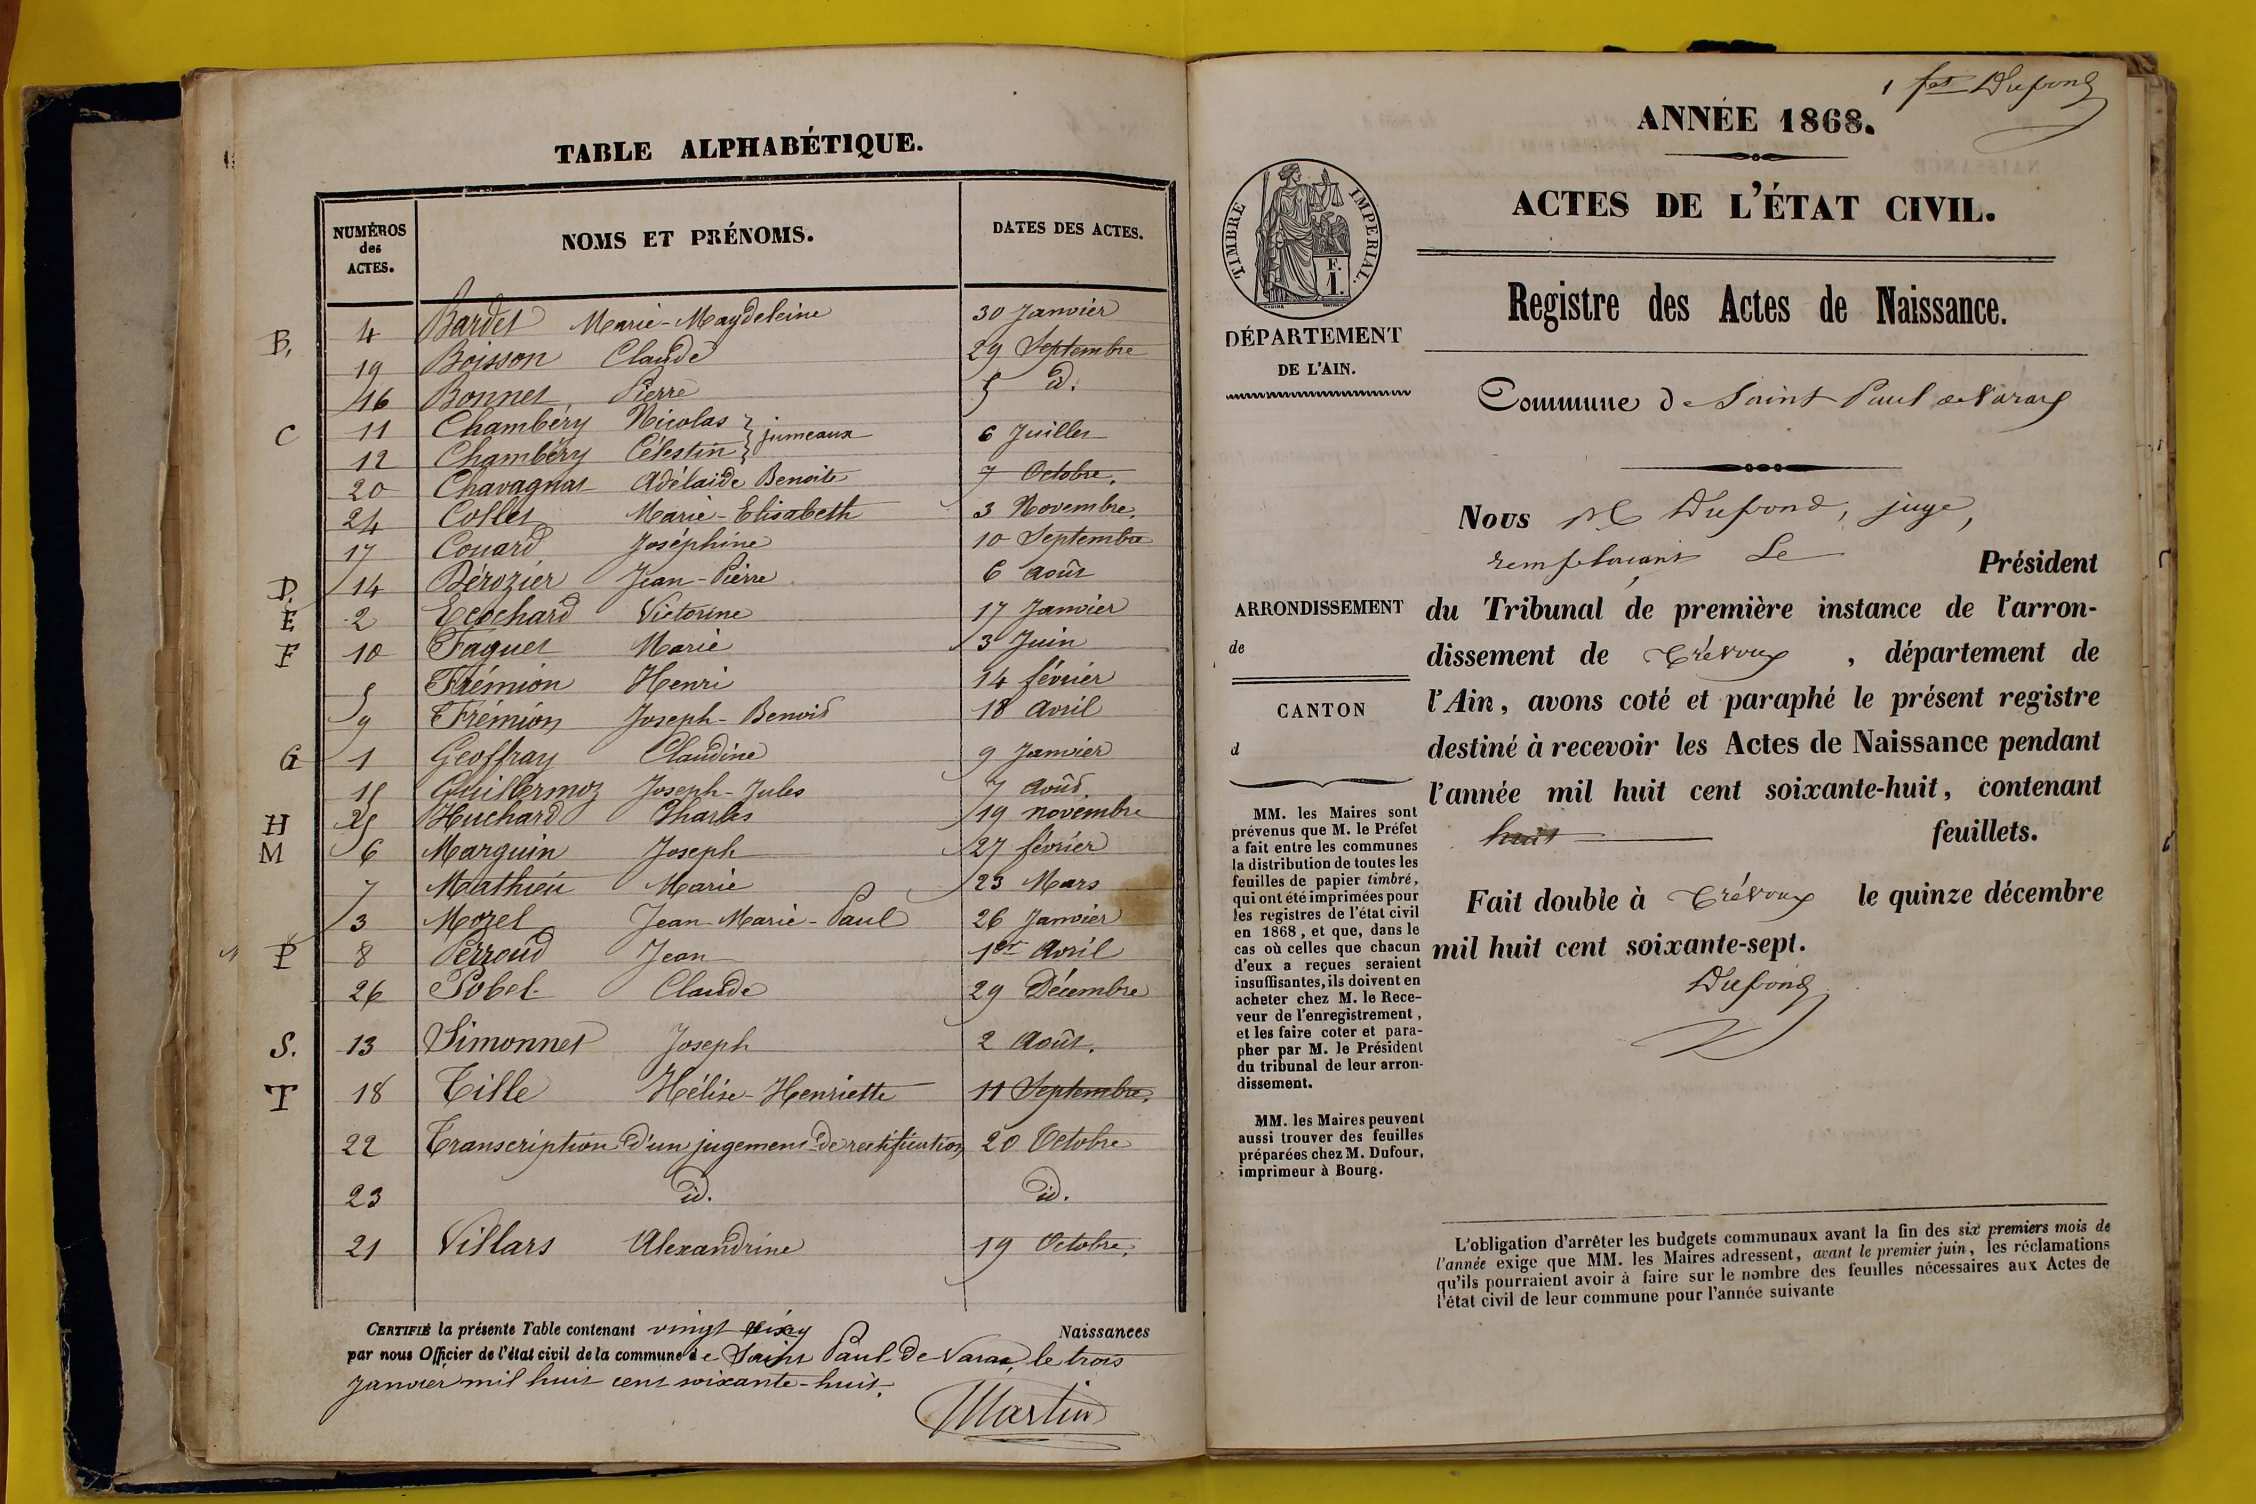 TABLE ALPHABÉTIQUE.
NUMÉROS des ACTES. NOMS ET PRÉNOMS. DATES DES ACTES.
B. 4 Bardet Marie-Magdeleine 30 Janvier
19 Boisson Claude 29 Septembre
16 Bonnet Pierre 5 id.
C 11 Chambéry Nicolas } jumeaux 6 Juillet
12 Chambéry Célestin
20 Chavagnat Adélaide Benoite 7 Octobre.
24 Collet Marie-Elisabeth 3 Novembre.
17 Couard Joséphine 10 Septembre
D. 14 Dérozier Jean-Pierre 6 Août
E 2 Ecochard Victorine 17 Janvier
F 10 Faguet Marie 3 Juin
5 Frémion Henri 14 février
9 Frémion Joseph-Benoit 18 avril
G 1 Geoffray Claudine 9 Janvier
15 Guillermoz Joseph-Jules 7 Août.
H 25 Huchard Charles 19 novembre
M 6 Marguin Joseph 27 février
7 Mathieu Marie 23 Mars
3 Mozel Jean-Marie-Paul 26 Janvier
P 8 Perroud Jean 1er Avril
26 Pobel Claude 29 Décembre
S. 13 Simonnet Joseph 2 Août.
T 18 Tille Hélise-Henriette 11 Septembre.
22 Transcription d'un jugement de rectification 20 Octobre
23 id. id.
21 Villars Alexandrine 19 Octobre.
CERTIFIÉ la présente Table contenant vingt six Naissances
par nous Officier de l'état civil de la commune de Saint Paul-de-Varax, le trois
Janvier mil huit cent soixante-huit.
Martin
1 fet Dufond
ANNÉE 1868.
ACTES DE L'ÉTAT CIVIL.
TIMBRE IMPERIAL.
F.
1.
Registre des Actes de Naissance.
DÉPARTEMENT
DE L'AIN.
Commune de Saint Paul de Varax
Nous M Dufond, juge,
remplaçant Le Président
du Tribunal de première instance de l'arron-
dissement de Trévoux, département de
l'Ain, avons coté et paraphé le présent registre
destiné à recevoir les Actes de Naissance pendant
l'année mil huit cent soixante-huit, contenant
huit feuillets.
Fait double à Trévoux le quinze décembre
mil huit cent soixante-sept.
Dufond
ARRONDISSEMENT
de
CANTON
d
MM. les Maires sont
prévenus que M. le Préfet
a fait entre les communes
la distribution de toutes les
feuilles de papier timbré,
qui ont été imprimées pour
les registres de l'état civil
en 1868, et que, dans le
cas où celles que chacun
d'eux a reçues seraient
insuffisantes, ils doivent en
acheter chez M. le Rece-
veur de l'enregistrement,
et les faire coter et para-
pher par M. le Président
du tribunal de leur arron-
dissement.
MM. les Maires peuvent
aussi trouver des feuilles
préparées chez M. Dufour,
imprimeur à Bourg.
L'obligation d'arrêter les budgets communaux avant la fin des six premiers mois de
l'année exige que MM. les Maires adressent, avant le premier juin, les réclamations
qu'ils pourraient avoir à faire sur le nombre des feuilles nécessaires aux Actes de
l'état civil de leur commune pour l'année suivante